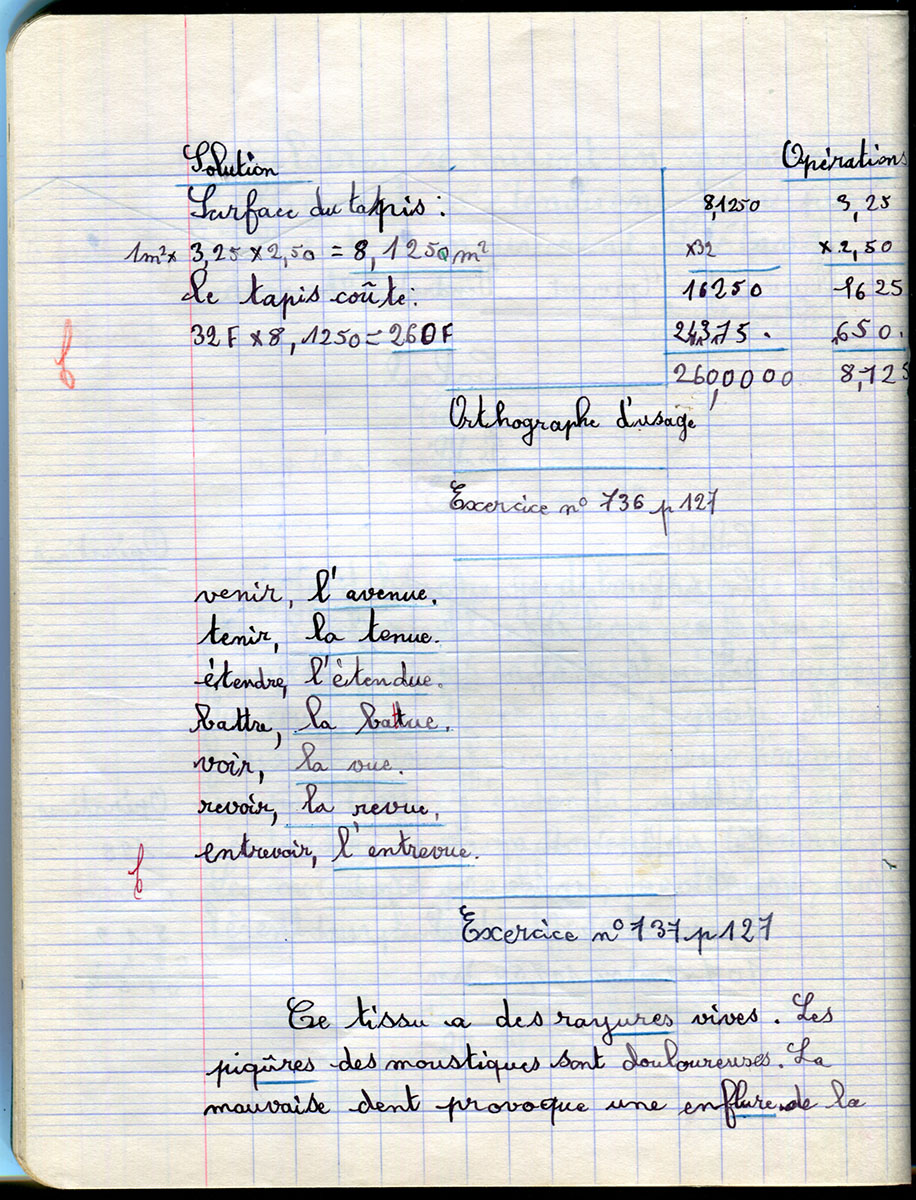 Solution
Opérations
Surface du tapis :
1m²× 3,25 × 2,50 = 8,1250 m²
Le tapis coûte :
32 F × 8,1250 = 260 F
8,1250
×32
16250
24375.
260,0000
3,25
×2,50
1625
650.
8,125
Orthographe d'usage
Exercice n° 736 p 127
venir, l'avenue.
tenir, la tenue.
étendre, l'étendue.
battre, la battue.
voir, la vue.
revoir, la revue.
entrevoir, l'entrevue.
Exercice n° 737 p 127
Ce tissu a des rayures vives. Les
piqûres des moustiques sont douloureuses. La
mauvaise dent provoque une enflure de la